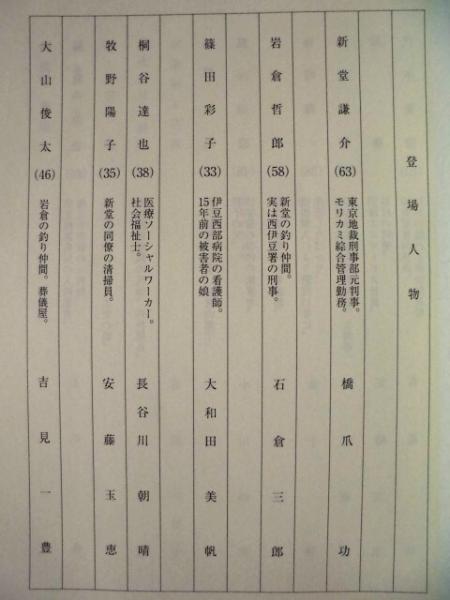 登場人物
新堂謙介(63) 東京地裁刑事部元判事。 橋爪功
モリカミ綜合管理勤務。
岩倉哲郎(58) 新堂の釣り仲間。 石倉三郎
実は西伊豆署の刑事。
篠田彩子(33) 伊豆西部病院の看護師。 大和田美帆
15年前の被害者の娘
桐谷達也(38) 医療ソーシャルワーカー。 長谷川朝晴
社会福祉士。
牧野陽子(35) 新堂の同僚の清掃員。 安藤玉恵
大山俊太(46) 岩倉の釣り仲間。葬儀屋。 吉見一豊